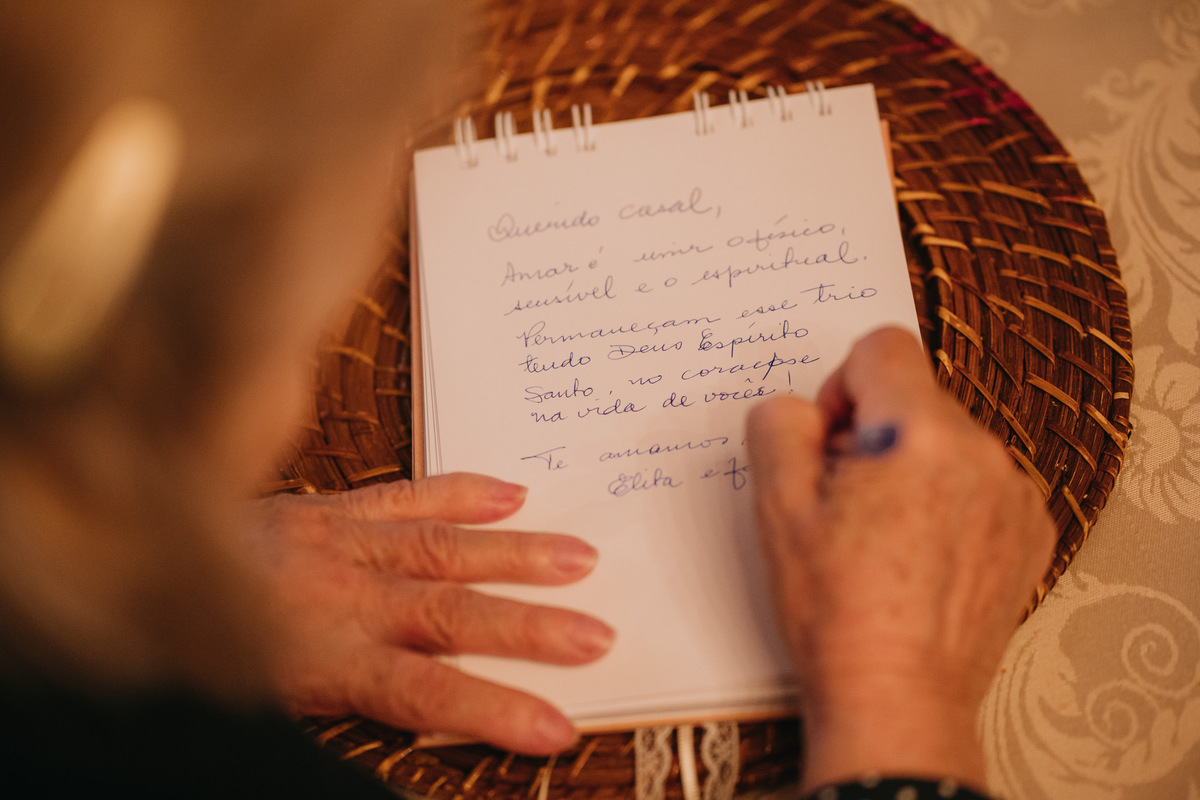 Querido casal,
Amar é unir o físico,
sensível e o espiritual.
Permaneçam esse trio
tendo Deus Espírito
Santo, no coração e
na vida de vocês!
Te amamos,
Elita e